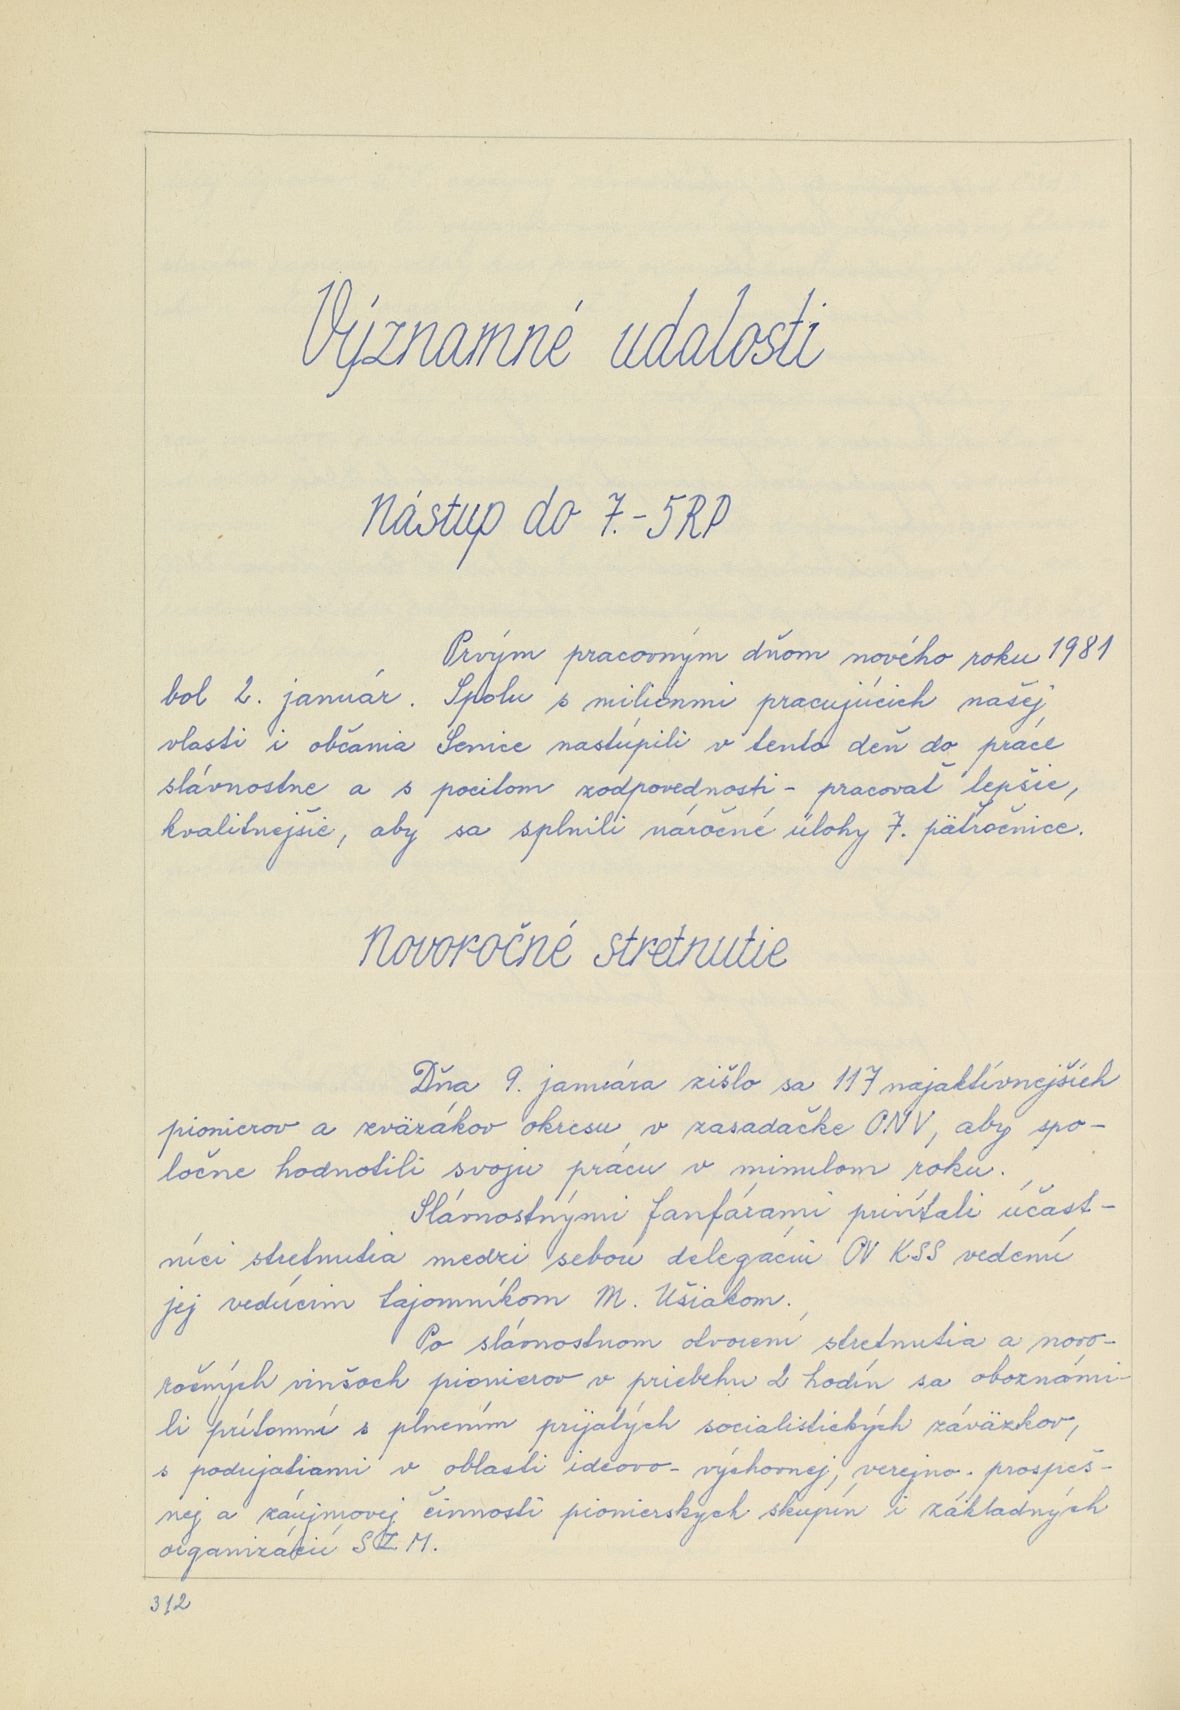 Významné udalosti
Nástup do 7.-5RP
Prvým pracovným dňom nového roku 1981
bol 2. január. Spolu s miliónmi pracujúcich našej
vlasti i občania Senice nastúpili v tento deň do práce
slávnostne a s pocitom zodpovednosti - pracovať lepšie,
kvalitnejšie, aby sa splnili náročné úlohy 7. päťročnice.
Novoročné stretnutie
Dňa 9. januára zišlo sa 117 najaktívnejších
pionierov a zväzákov okresu v zasadačke ONV, aby spo-
ločne hodnotili svoju prácu v minulom roku.
Slávnostnými fanfárami privítali účast-
níci stretnutia medzi sebou delegáciu OV KSS vedenú
jej vedúcim tajomníkom M. Ušiakom.
Po slávnostnom otvorení stretnutia a novo-
ročných vinšoch pionierov v priebehu 2 hodín sa oboznámi-
li prítomní s plnením prijatých socialistických záväzkov,
s podujatiami v oblasti ideovo-výchovnej, verejno-prospeš-
nej a záujmovej činnosti pionierskych skupín i základných
organizácií SZM.
312